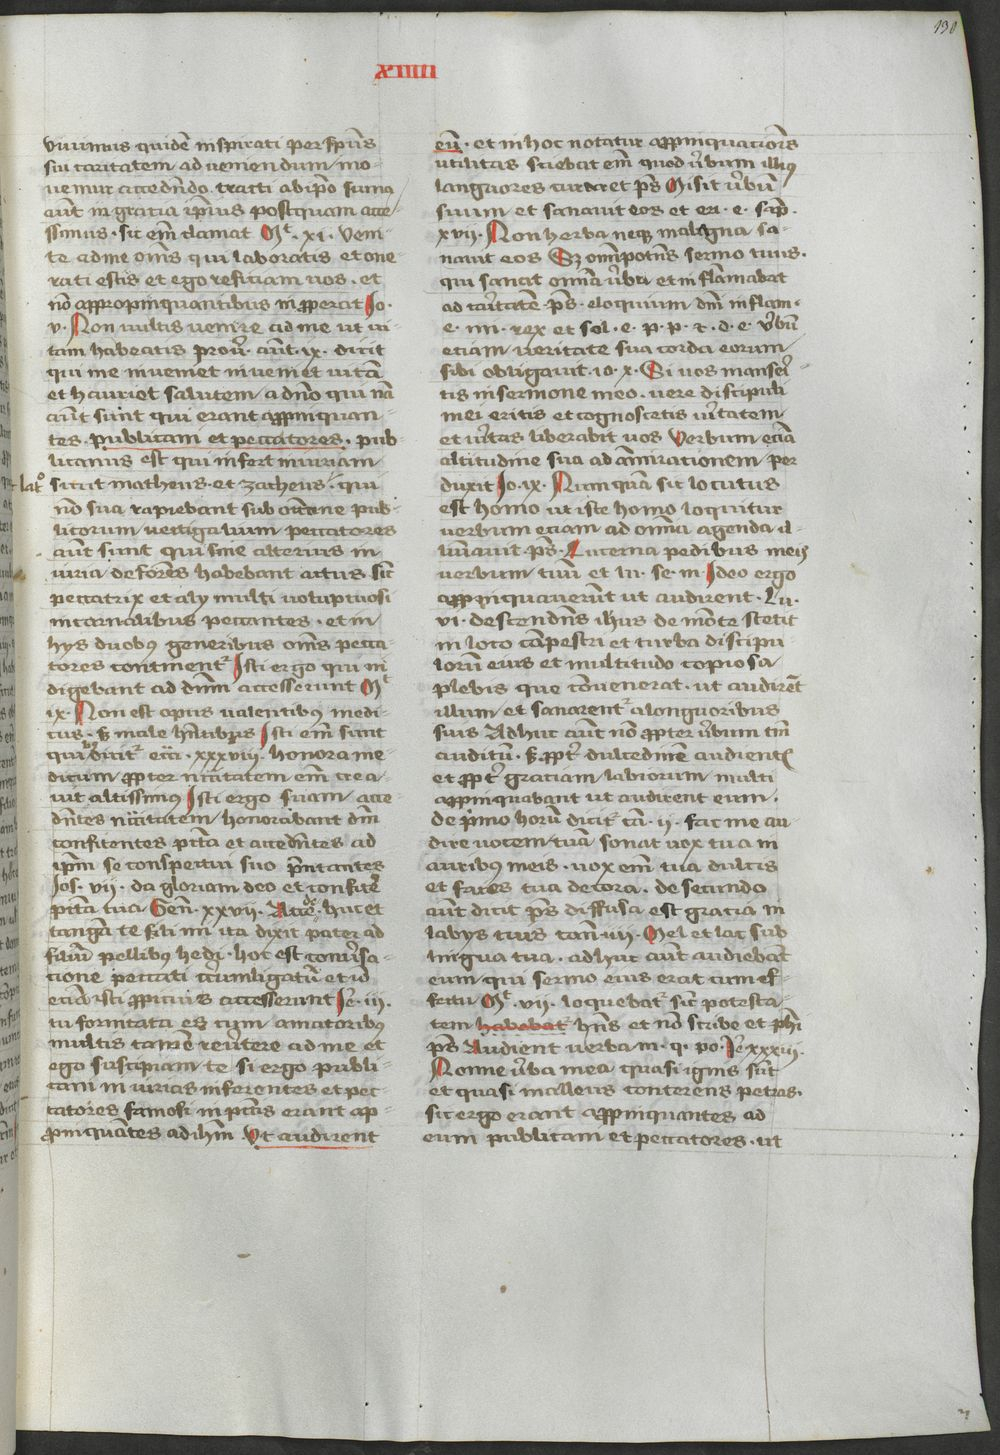 130
xiiii
viuimus quidē inspirati per spūs
sui caritatem ad veniendum mo-
uemur accedēdo tracti ab ipō sumus
aūt in gratia ipsius postquam acce-
ssimus · sic em̄ clamat Mt · xi · veni-
te ad me om̄s qui laboratis et one-
rati estis et ego reficiam uos · et
nō appropinquantibus inpperat Io ·
v · Non uultis uenire ad me ut ui-
tam habeatis prou̓ · aūt · ix · dicit
qui me inueniet inueniet uitā
et hauriet salutem a dn̄o qui nā
aūt sunt qui erant appinquan-
tes · publicani et peccatores · pub-
licanus est qui infert iniuriam
sicut matheus · et zacheus · qui
nō sua rapiebant sub
licorum uectigalium peccatores
aūt sunt qui sine alterius in
iuria deformes habebant actus sic̄
peccatrix et alij multi uoluptuosi
in carnalibus peccantes · et in
hijs duobus generibus om̄s pecca
tores continentr Isti ergo qui in
digebant ad dn̄m accesserunt Mt
ix · Non est opus ualentibus medi-
cus · s male hn̄tibus Isti em̄ sunt
quibus dicitr ecci · xxxviii · honora me-
dicum ppter necitatem em̄ crea-
uit altissimus Isti ergo suam acce
dn̄tes necitatem honorabant dn̄m
confitentes pctā et accedn̄tes ad
ipm̄ se conspectui suo pn̄tantes
Ios · vii · da gloriam deo et confitē
pctā tua Gen̄ · xxvii · Accede huc ut
tangā te fili mi ita dixit pater ad
filiū pellibus hedi · hoc est conuersa
tione peccati circumligatū et iō
etiā isti ppicius accesserunt Ie · iii ·
tu fornicata es cum amatoribus
multis tamē reuertere ad me et
ego suscipiam te si ergo publi
cani iniurias inferentes et pec
catores famosi in pctīs erant ap-
pinquātes ad ihm̄ Vt audirent
eū · et in hoc notatur appinquationis
utilitas sciebat em̄ quod ūbum illius
languores curaret ps̄ Misit ūbū
suum et sanauit eos et eri · e · sap̄ ·
xvii · Non herba neqz malagna sa-
nauit eos Sz om̄ipotn̄s sermo tuus ·
qui sanat om̄ia ūba et inflamabat
ad caritatē ps̄ · eloquium dn̄i inflam ·
e · iiii · rex et sol · e · p · p · t · d · e · ūbū
etiam ueritate sua corda eorum
sibi obligauit · io · x · Si uos manseri
tis in sermone meo · uere discipuli
mei eritis et cognoscetis ūitatem
et ūitas liberabit uos Verbum etiā
altitudine sua ad am̄irationem per
duxit Io · ix · Nunquā sic locutus
est homo ut iste homo loquitur
uerbum etiam ad om̄ia agenda il-
luīauit · ps̄ · Lucerna pedibus meis
uerbum tuū et lu · se · m · Ideo ergo
appinquauerūt ut audirent · Lu ·
vi · descendn̄s ihūs de mōte stetit
in loco cāpestri et turba discipu
lorū eius et multitudo copiosa
plebis que cōuenerat · ut audirēt
illum et sanarentr a languoribus
suis Adhuc aūt nō ppter ūbum tm̄
auditū · s ppt dulcedinē audientes
et ppt gratiam labiorum multi
appinquabant ut audirent eum ·
de pimo horū dicitr cā · ii · fac me au
dire uocem tuā sonat uox tua in
auribus meis · uox em̄ tua dulcis
et facies tua decora · de secundo
aūt dicit ps̄ diffusa est gratia in
labijs tuis cān · iiij · Mel et lac sub
lingua tua · adhuc aūt audiebāt
eum qui sermo eius erat cum ef-
fectu Mt · vii · loquebatr sic̄ potesta-
tem habebat hn̄s et nō scribe et phi
ps̄ Audient uerba m · q · po · Ie · xxxiii ·
Nonne ūba mea quasi ignis sūt
et quasi malleus conterens petras ·
sic ergo erant appinquantes ad
eum publicani et peccatores · ut